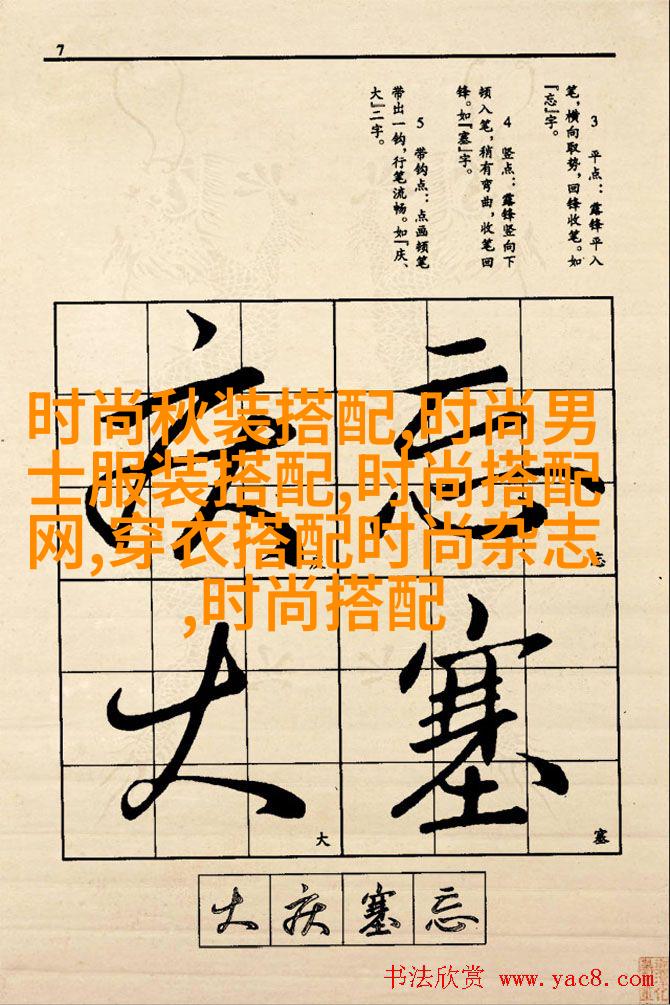 7
3 平点：露锋平入
笔，横向取势，回锋收笔。如
『忘』字。
4 竖点：露锋竖向下
顿入笔，稍有弯曲，收笔回
锋。如『塞』字。
5 带钩点：点画顿笔
带出一钩，行笔流畅。如『庆、
大』二字。
忘
塞
庆
大
忘
塞
大
时尚秋装搭配,时尚男
士服装搭配,时尚搭配
网,穿衣搭配时尚杂志
,时尚搭配
大 庆 塞 忘
书法欣赏 www.yac8.com